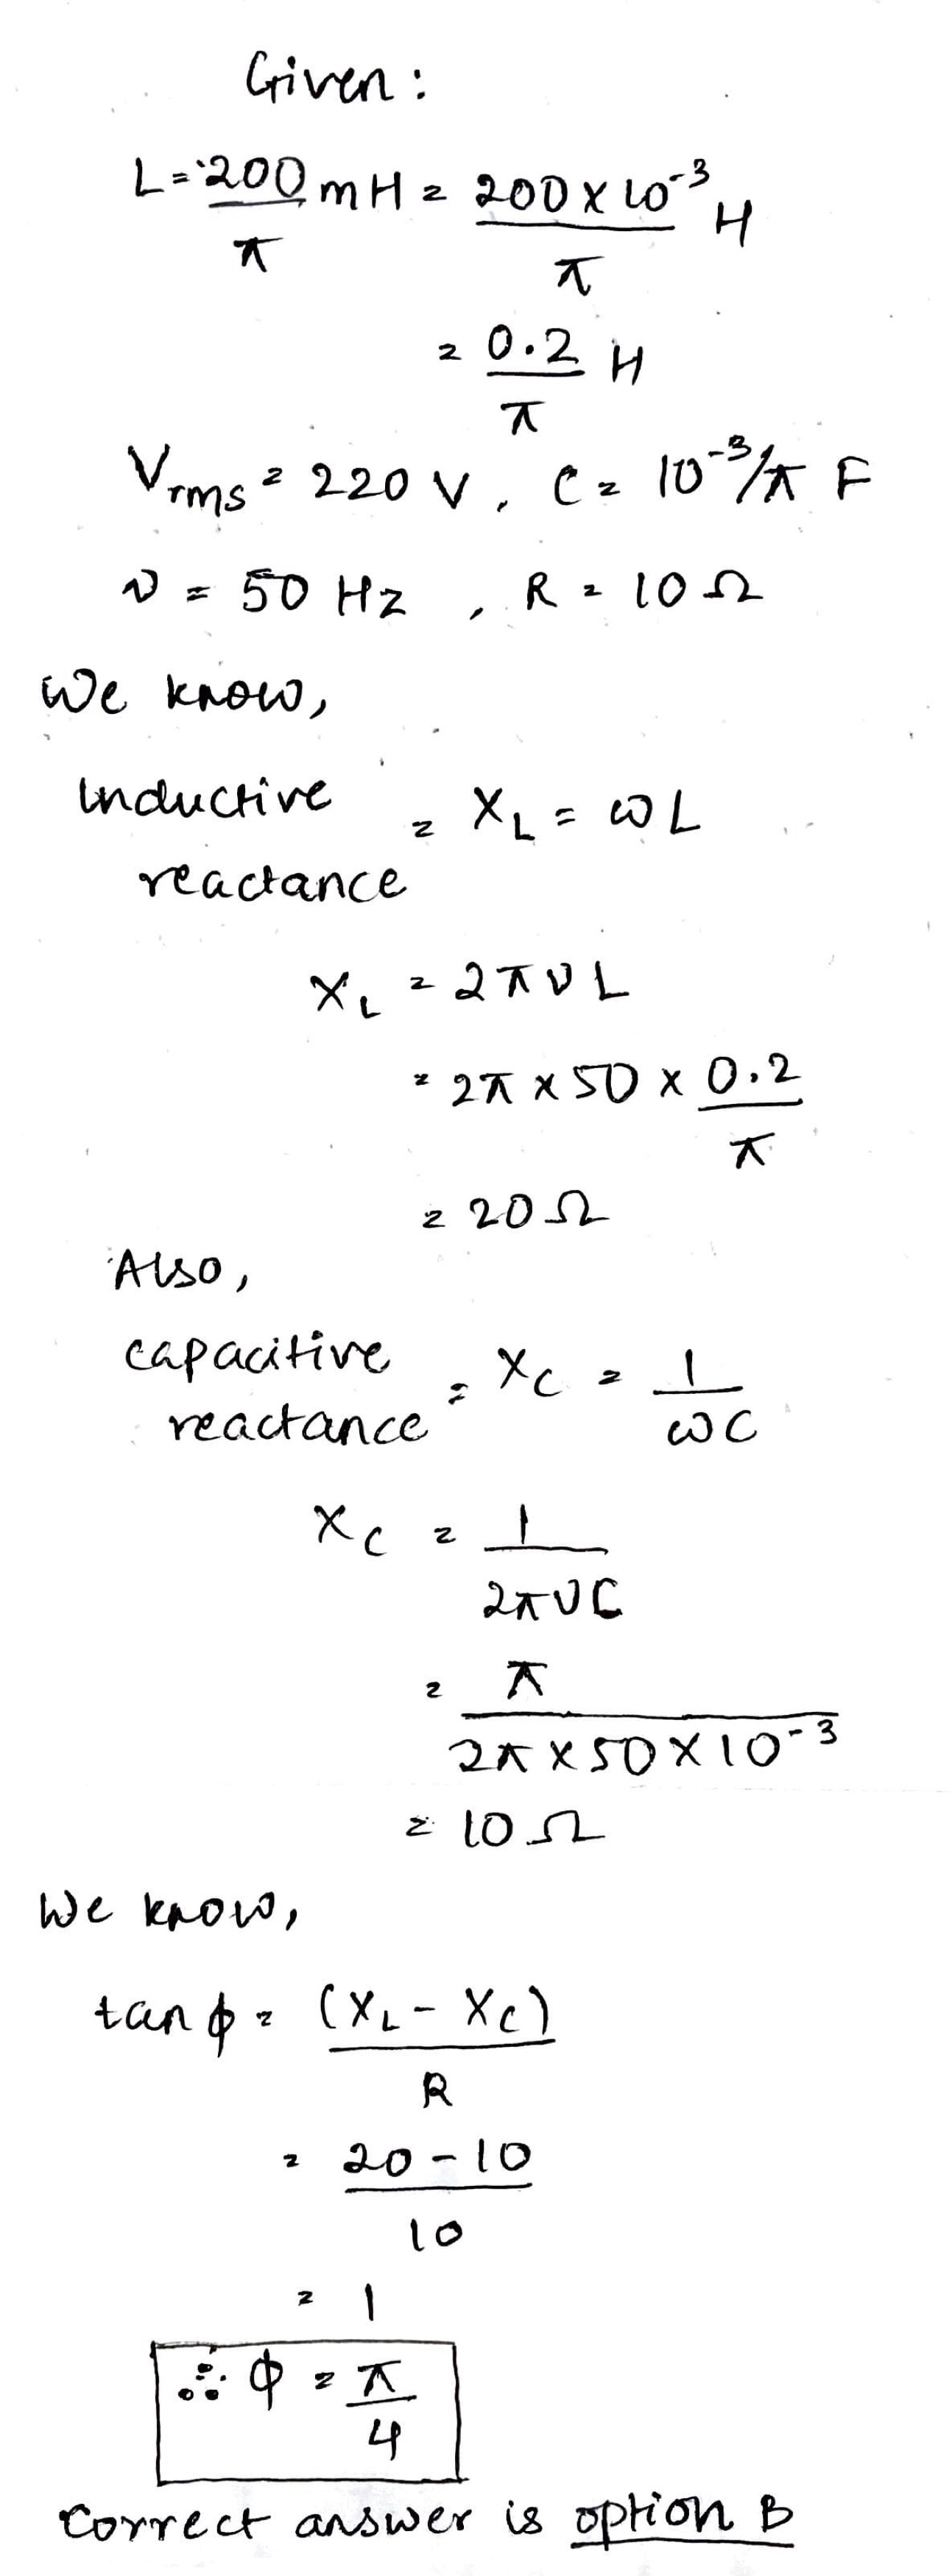 Given :
L = 200/π mH = 200 × 10⁻³/π H
= 0.2/π H
Vrms = 220 V, C = 10⁻³/π F
ν = 50 Hz, R = 10 Ω
We know,
Inductive reactance = X_L = ωL
X_L = 2πνL
= 2π × 50 × 0.2/π
= 20 Ω
Also,
capacitive reactance = X_C = 1/ωC
X_C = 1/2πνC
= π/2π × 50 × 10⁻³
= 10 Ω
We know,
tan ϕ = (X_L - X_C)/R
= 20 - 10/10
= 1
∴ ϕ = π/4
Correct answer is option B